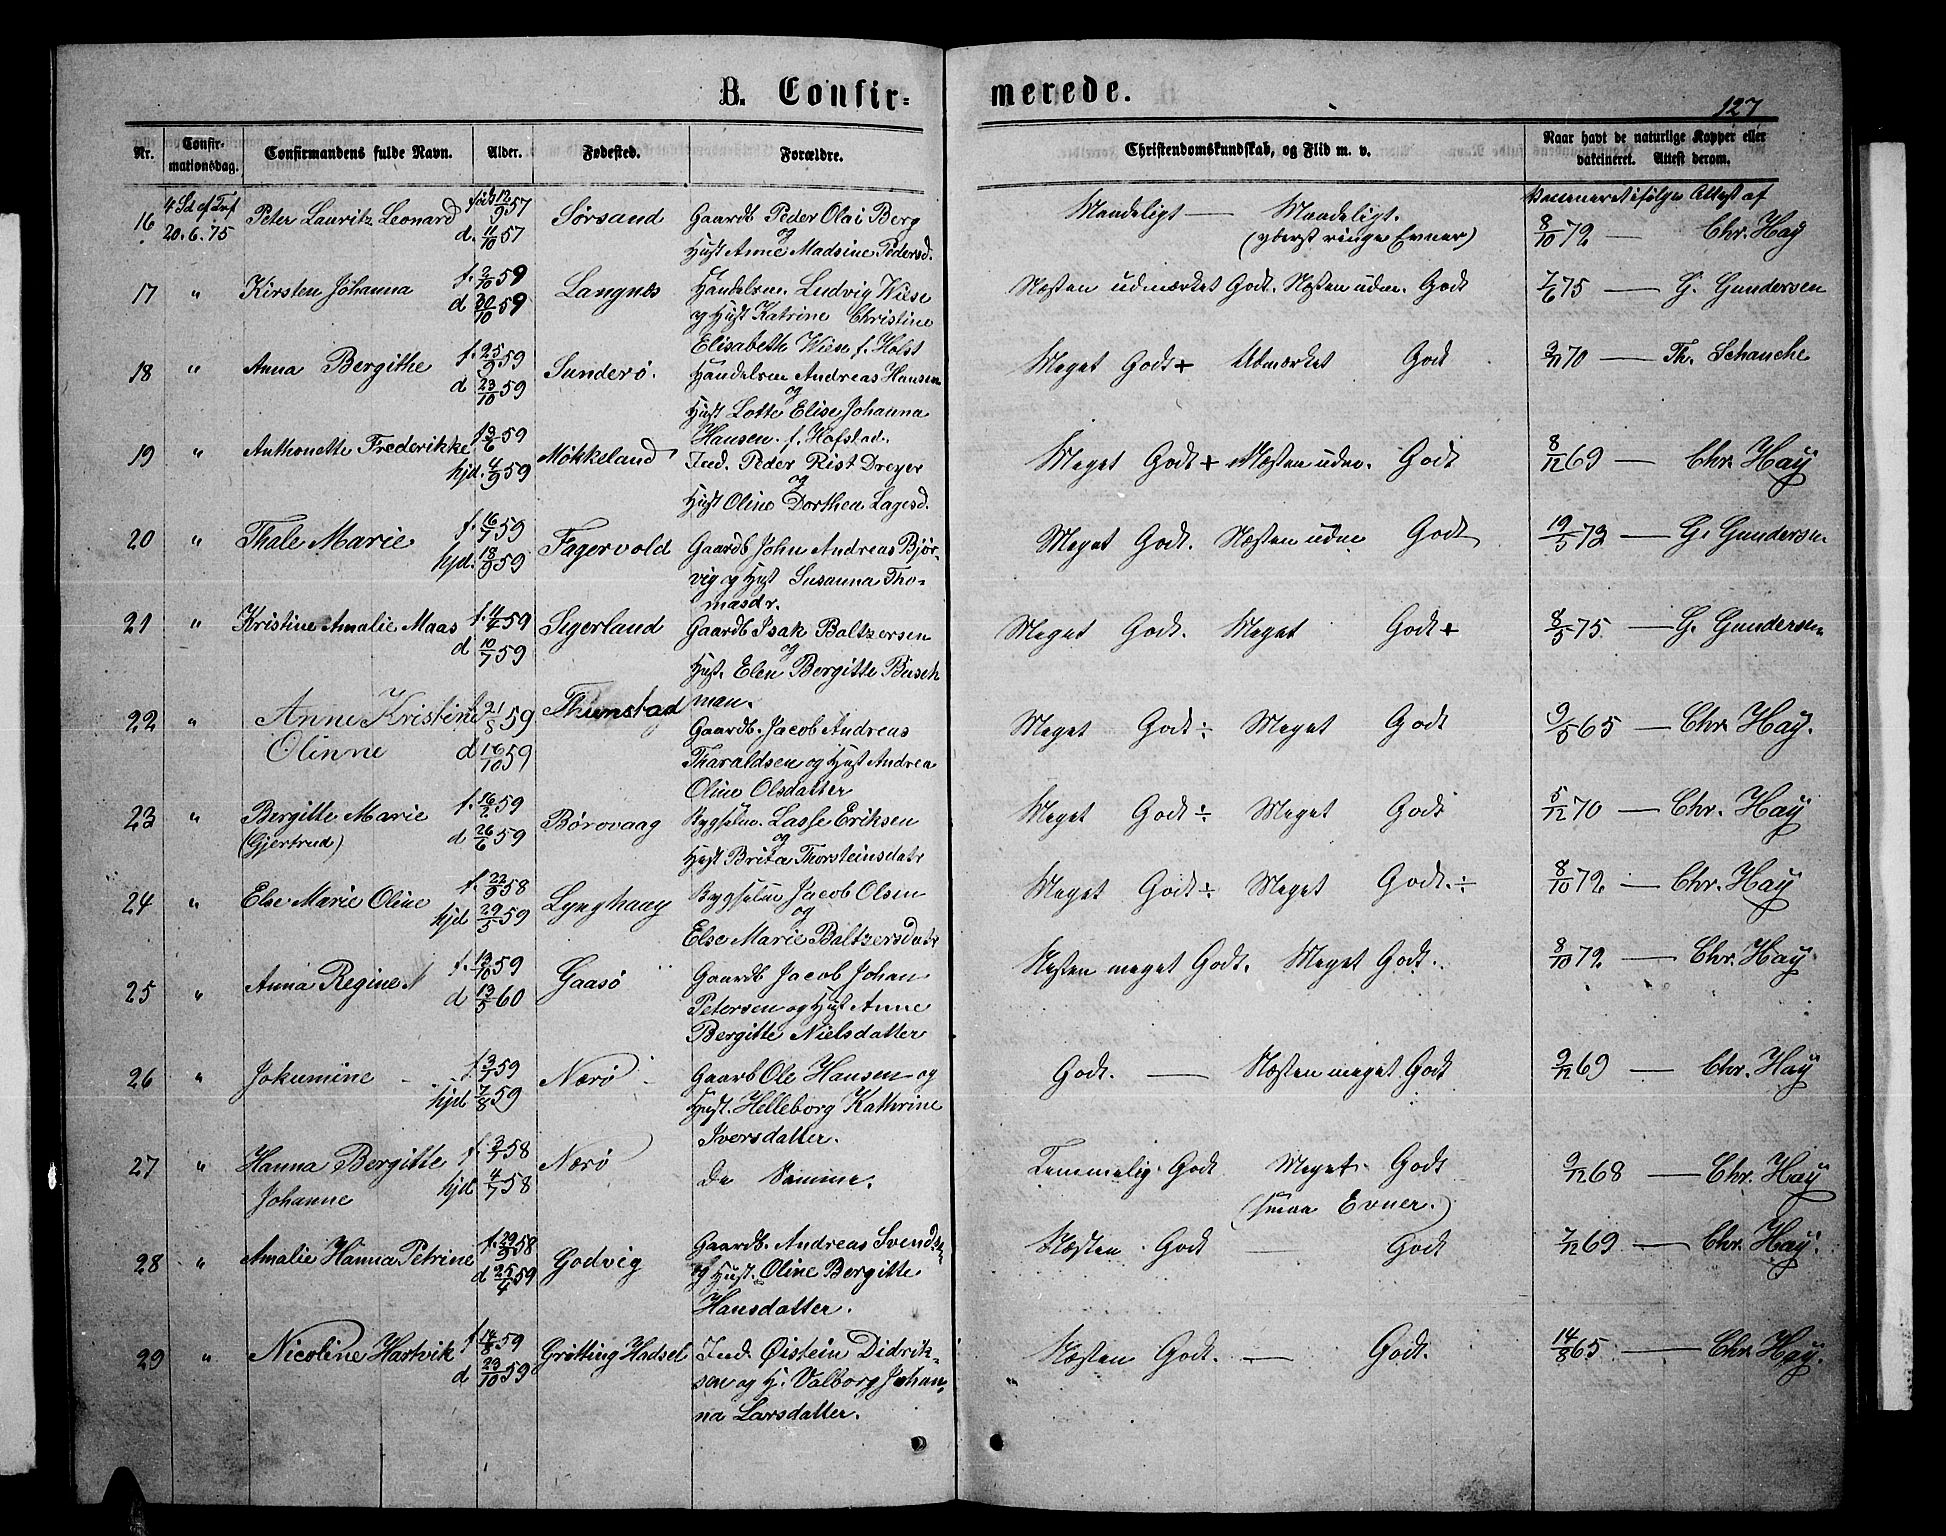 B. Confir=merede.
127
Nr. Confirmationsdag. Confirmandens fulde Navn. Alder. Fødested. Forældre. Christendomskundskab, og Flid m. v. Naar havt de naturlige Kopper eller vakcineret. Attest derom.
16 4 Sd ef Trf 20.6.75 Peter Lauritz Leonard født 12/9 57 d. 11/10 57 Sørsand Gaardb Peder Olai Berg og Hust Anne Madsine Pedersd. Maadeligt — Maadeligt. (yderst ringe Evner) Vaccineret ifølge Attest af 8/10 72 — Chr. Hay
17 " Kirsten Johanna f. 2/10 59 d 30/10 59 Langnæs Handelsm. Ludvig Wiese og Hust Katrine Christine Elisabeth Wiese f. Holst Næsten udmærket Godt. Næsten udm. Godt 7/6 75 — G. Gundersen
18 " Anna Bergithe f. 25/9 59 d 23/10 59 Sunderø. Handelsm Andreas Hansen og Hust Lotte Elise Johanna Hansen f. Hofstad. Meget Godt + Udmærket Godt 2/11 70 — Th. Schanche
19 " Anthonette Frederikke f 3/6 59 hjd. 4/9 59 Møkkeland Ind. Peder Rist Dreyer og Hust Oline Dorthea Lagesd. Meget Godt + Næsten udm. Godt 8/12 69 — Chr. Hay
20 " Thale Marie f. 16/7 59 hjd. 18/9 59 Fagervold Gaardb John Andreas Bjørvig og Hust Susanna Thomasdr. Meget Godt. Næsten udm Godt 19/5 73 — G. Gundersen
21 " Kristine Amalie Maas f. 11/4 59 d 10/7 59 Sigerland Gaardb Isak Baltzersen og Hust. Elen Bergitte Buschman. Meget Godt. Meget Godt + 8/5 75 — G. Gundersen
22 " Anne Kristine Olinne f 21/8 59 d 16/10 59 Thunstad Gaardb. Jacob Andreas Tharaldsen og Hust Andrea Oline Olsdatter Meget Godt ÷ Meget Godt 9/5 65 — Chr. Hay.
23 " Bergitte Marie (Gjertrud) f. 16/2 59 d 26/6 59 Børovaag Bygselm. Lasse Eriksen og Hust Brita Thorsteinsdatr Meget Godt ÷ Meget Godt 5/12 70 — Chr. Hay
24 " Else Marie Oline f. 22/9 58 hjd 29/5 59 Lynghaug Bygselm Jacob Olsen og Else Marie Baltzersdatr Meget Godt ÷ Meget Godt. ÷ 8/10 72 — Chr. Hay
25 " Anna Regine f. 13/10 59 d 13/5 60 Gaasø Gaardb Jacob Johan Petersen og Hust Anne Bergitte Nielsdatter Næsten meget Godt. Meget Godt. 8/10 72 — Chr. Hay
26 " Jokumine f 3/7 59 hjd 7/8 59 Nærø Gaarb Ole Hansen og Hust. Helleborg Kathrine Iversdatter. Godt. — Næsten meget Godt 9/12 69 — Chr. Hay
27 " Hanna Bergitte Johanne f. 3/7 58 hjd 4/7 58 Nærø De Samme. Temmelig Godt Meget Godt (smaa Evner.) 9/12 68 — Chr. Hay
28 " Amalie Hanna Petrine f. 29/9 58 d 25/4 59 Godvig Gaardb. Andreas Svends. og Hust. Oline Bergitte Hansdatter. Næsten Godt — Godt 7/12 69 — Chr. Hay.
29 " Nicoline Hartvik f 14/8 59 d 23/10 59 Grøtting Hadsel Ind. Øistein Didriksen og H. Valborg Johanna Larsdatter. Næsten Godt. — Godt. 14/8 65 — Chr. Hay.